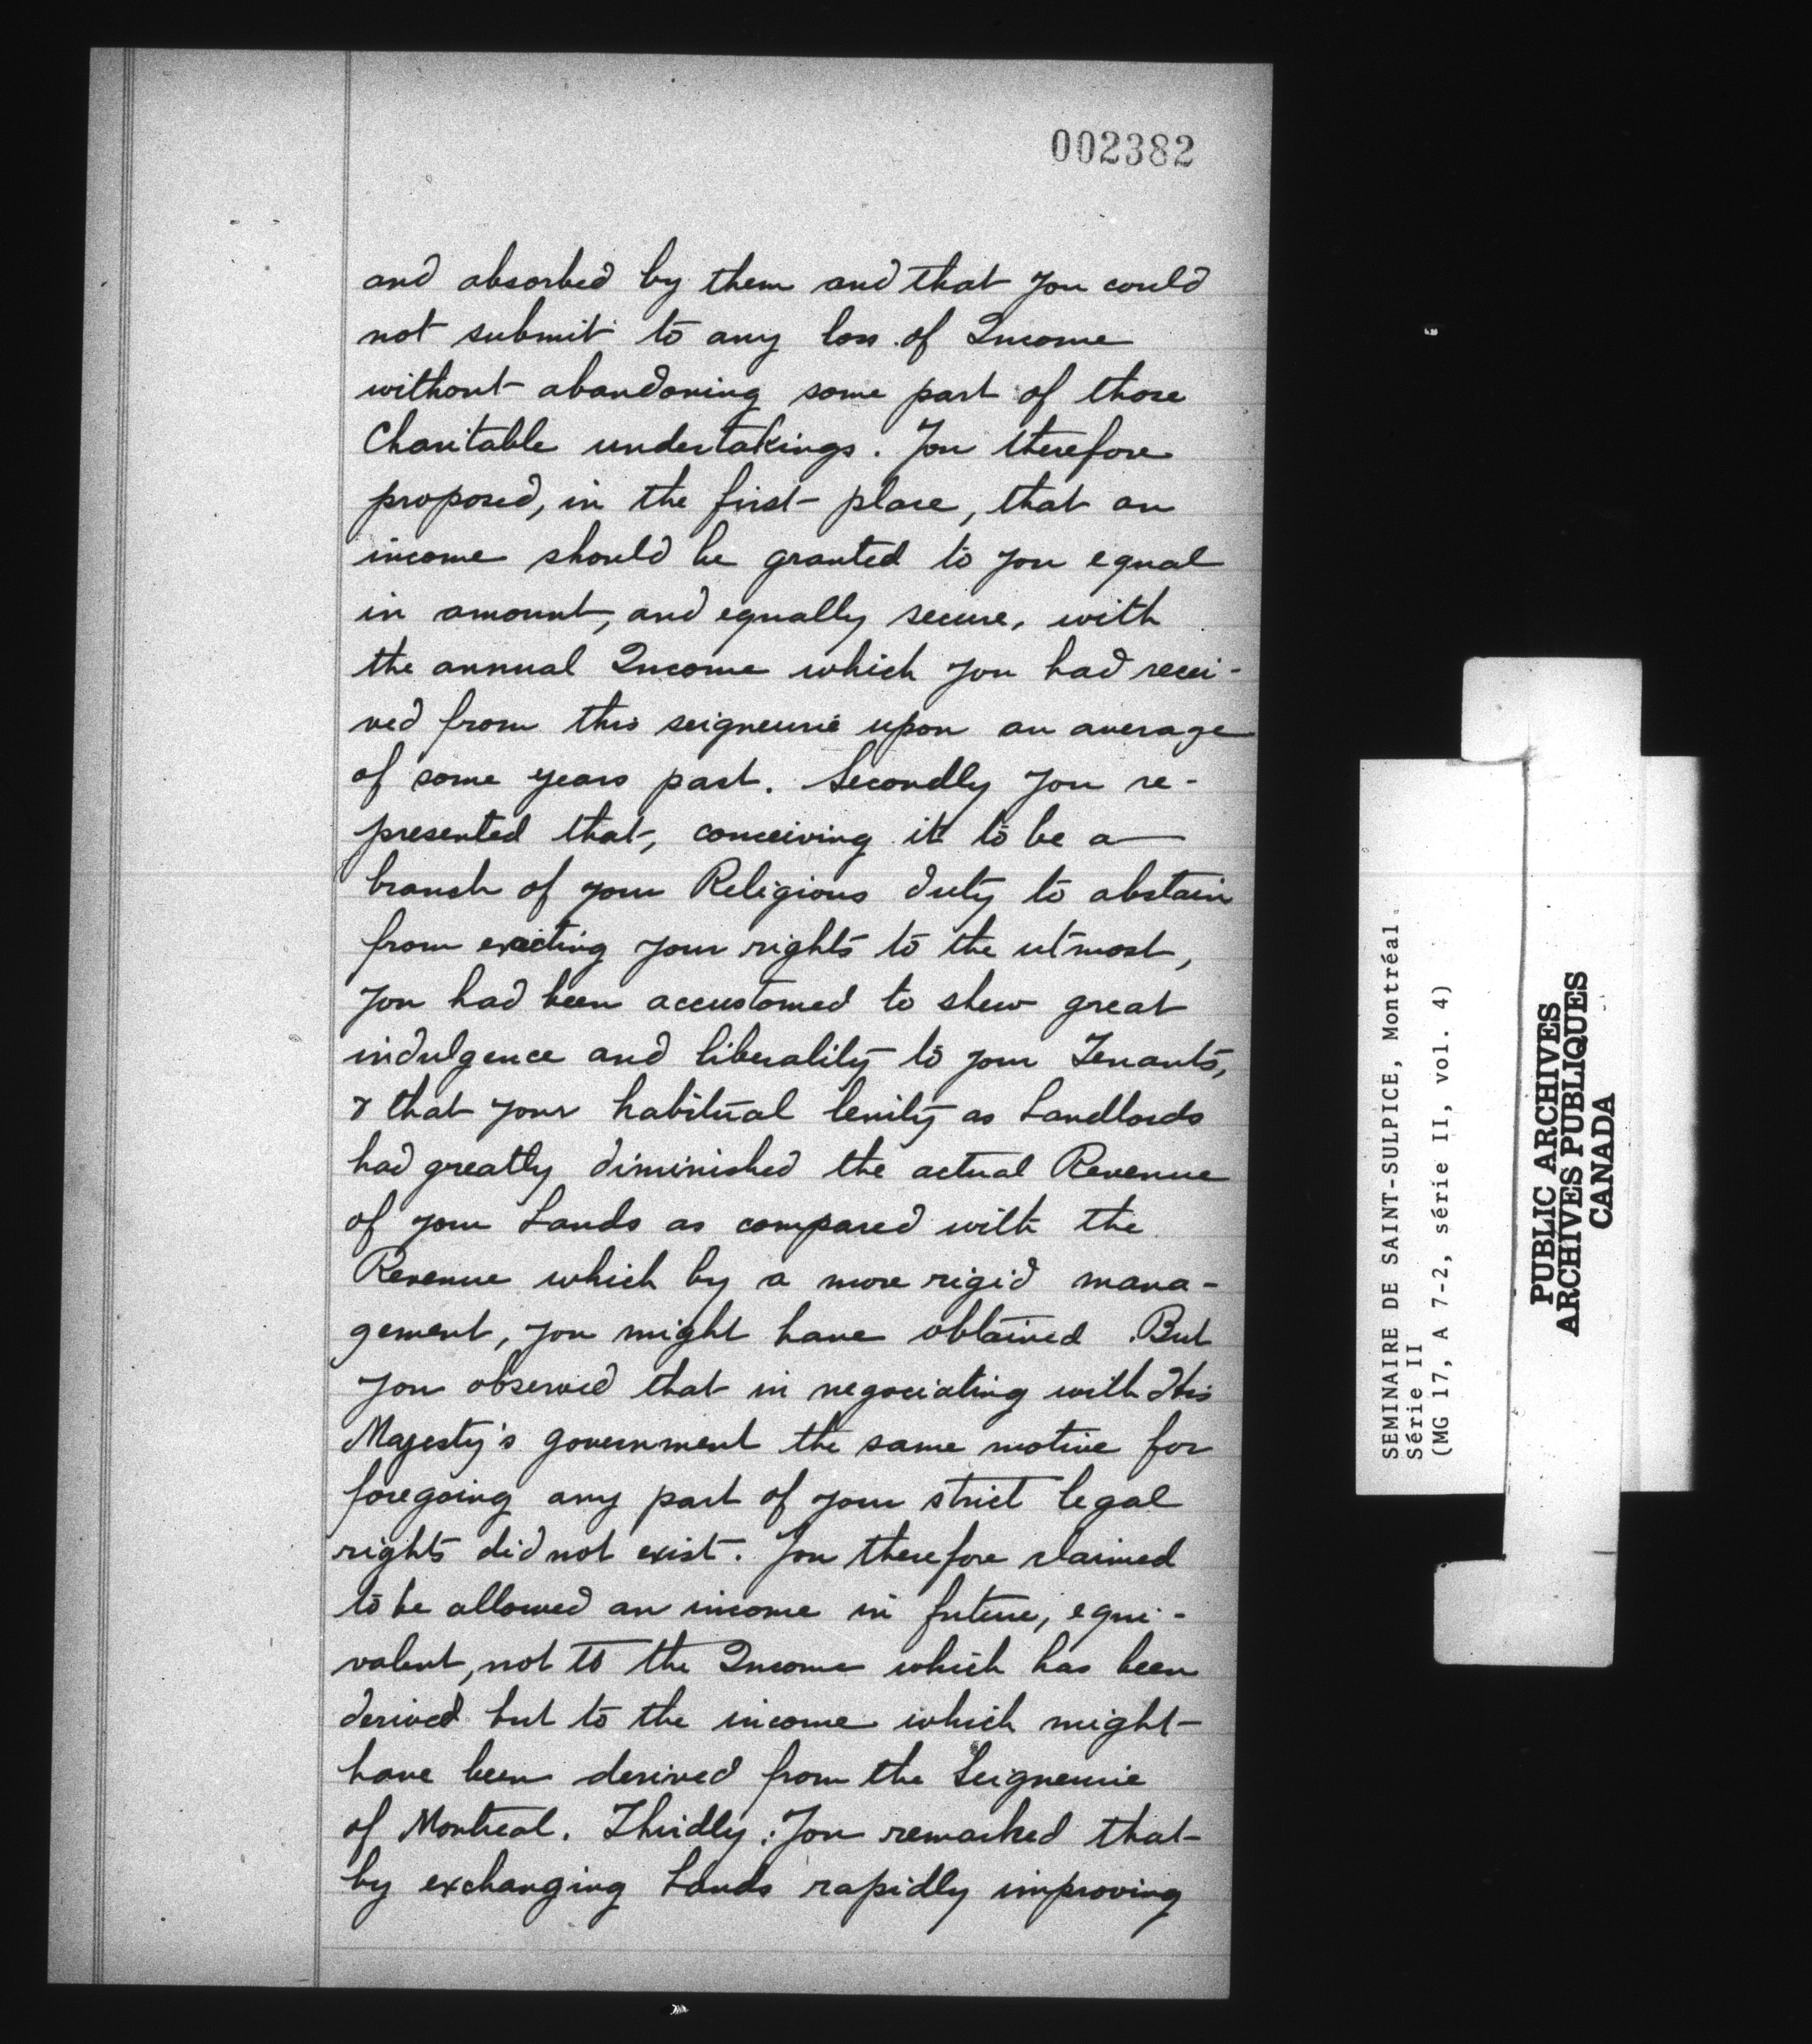 002382
and absorbed by them and that you could
not submit to any loss of Income
without abandoning some part of those
Charitable undertakings. You therefore
proposed, in the first place, that an
income should be granted to you equal
in amount, and equally secure, with
the annual Income which you had recei-
ved from this seigneurie upon an average
of some years past. Secondly you re-
presented that, conceiving it to be a
branch of your Religious duty to abstain
from exacting your rights to the utmost,
you had been accustomed to shew great
indulgence and liberality to your Tenants,
& that your habitual lenity as Landlords
had greatly diminished the actual Revenue
of your Lands as compared with the
Revenue which by a more rigid mana-
gement, you might have obtained. But
you observed that in negociating with His
Majesty's government the same motive for
foregoing any part of your strict legal
rights did not exist. You therefore claimed
to be allowed an income in future, equi-
valent, not to the Income which has been
derived but to the income which might
have been derived from the Seigneurie
of Montreal. Thirdly: You remarked that
by exchanging Lands rapidly improving
SEMINAIRE DE SAINT-SULPICE, Montréal.
Série II
(MG 17, A 7-2, série II, vol. 4)
PUBLIC ARCHIVES
ARCHIVES PUBLIQUES
CANADA